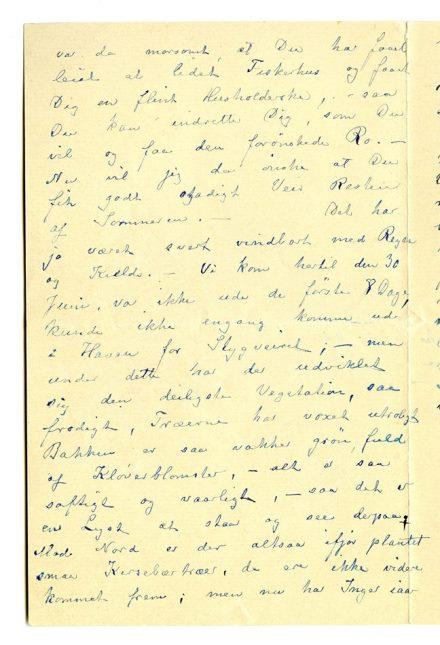 va da morsomt, at Du har faaet
leiet et lidet Fiskerhus og faaet
Dig en flink Husholderske, - saa
Du kan indrette Dig, som Du
vil og faa den forönskede Ro. -
Nu vil jeg da önske at Du
fik godt stadigt Veir Resten
af Sommeren. - Det har
jo været svært vindhart med Regn
og Kulde. - Vi kom hertil den 30
Juni, va ikke ude de förste 8 Dage,
kunde ikke engang komme ud
i Haven for Stygveiret; - men
under dette har der udviklet
sig den deiligste Vegetation, saa
frodigt, Træerne har voxet utroligt
Bakken er saa vakker grön, fuld
af Klöverblomster, - alt er saa
saftigt og vaarligt, - saa det er
en Lyst at staa og see derpaa
Mod Nord er der altsaa ifjor plantet
smaa Kirsebærtræer, de ere ikke videre
kommet frem; men nu har Inger iaar